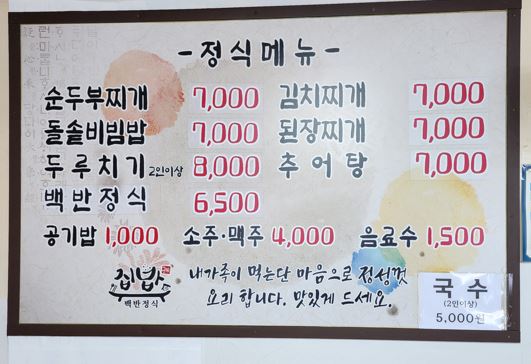 -정식메뉴-
순두부찌개 7,000 김치찌개 7,000
돌솥비빔밥 7,000 된장찌개 7,000
두루치기 2인이상 8,000 추어탕 7,000
백반정식 6,500
공기밥 1,000 소주·맥주 4,000 음료수 1,500
집밥
백반정식
내가족이 먹는단 마음으로 정성껏
요리 합니다. 맛있게 드세요.
국수
(2인이상)
5,000원